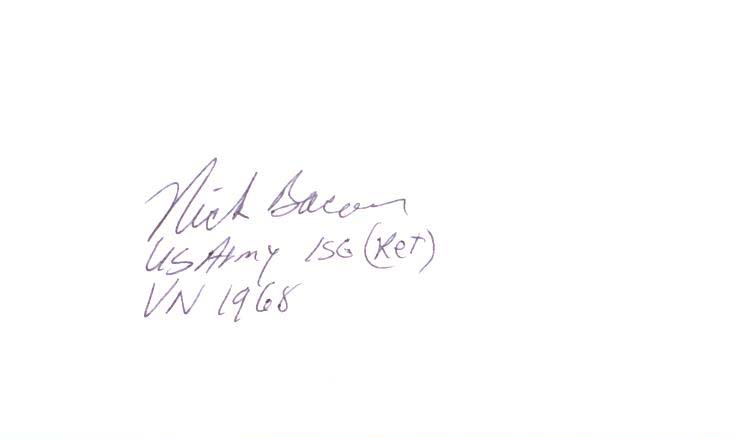 Nick Bacon
US Army 1SG (Ret)
VN 1968